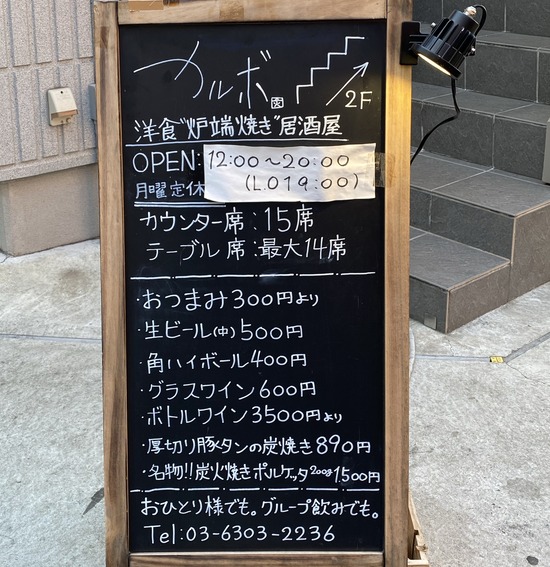 カルボ
2F
洋食“炉端焼き”居酒屋
OPEN: 12:00〜20:00
(L.O19:00)
月曜定休
カウンター席:15席
テーブル席:最大14席
・おつまみ300円より
・生ビール(中)500円
・角ハイボール400円
・グラスワイン600円
・ボトルワイン3500円より
・厚切り豚タンの炭焼き890円
・名物!!炭火焼きポルケッタ200g1.500円
おひとり様でも。グループ飲みでも。
Tel:03-6303-2236